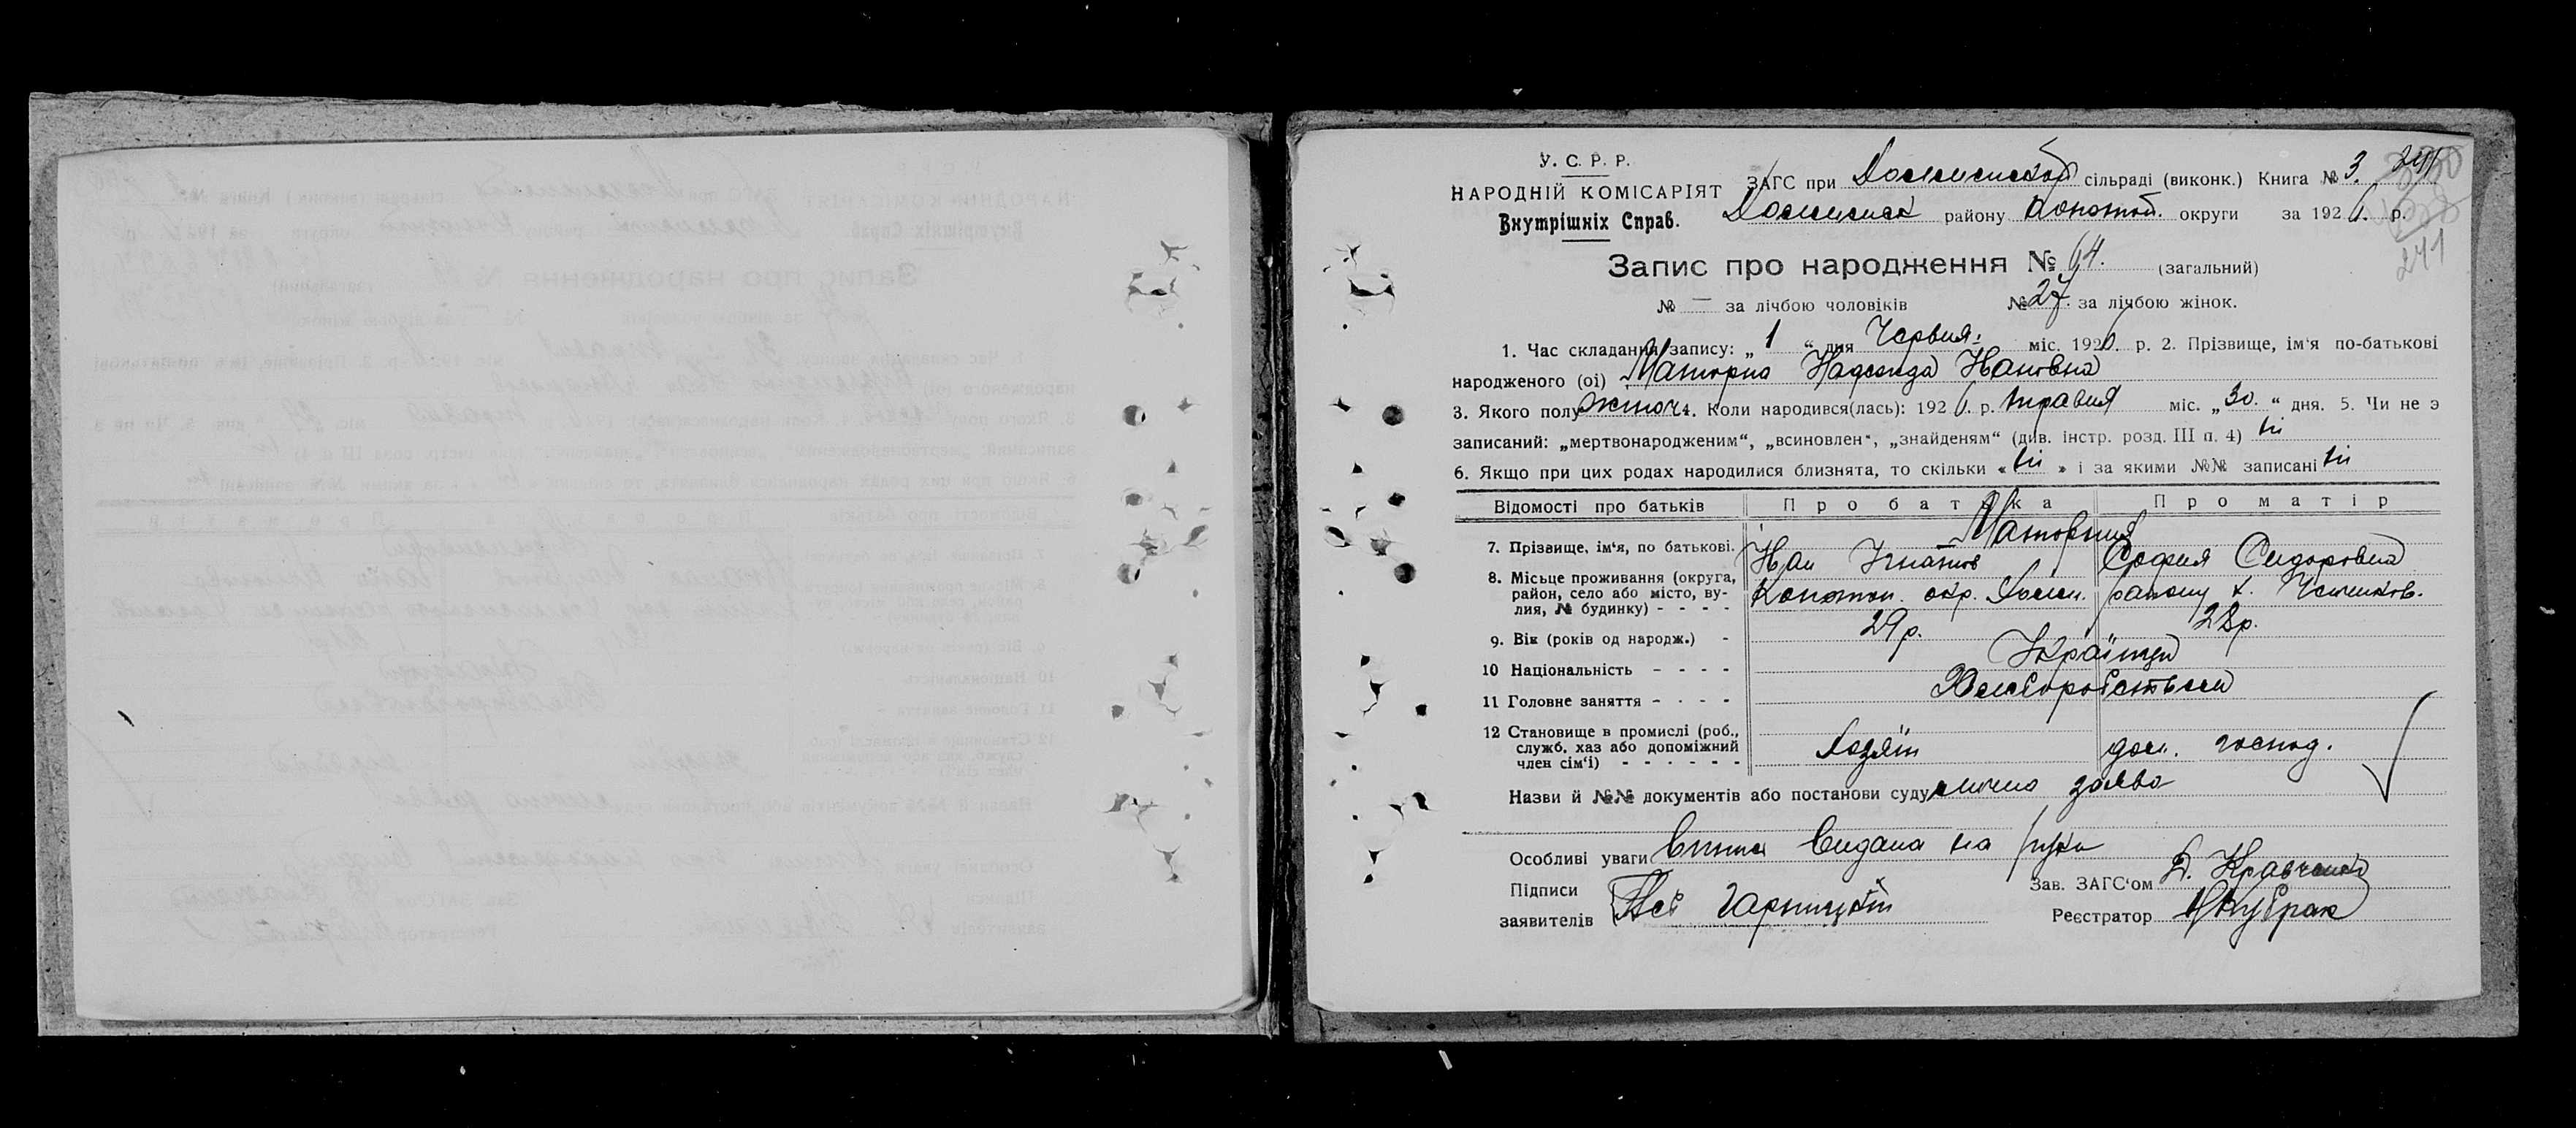 У. С. Р. Р.
НАРОДНІЙ КОМІСАРІЯТ
Внутрішніх Справ.
ЗАГС при сільраді (виконк.) Книга № 3. 241
району Конотоп. округи за 1926. р.
241
Запис про народження № 64. (загальний)
№ — за лічбою чоловіків № 27. за лічбою жінок.
1. Час складання запису: „ 1 “ дня Червня. міс. 1926. р. 2. Прізвище, ім'я по-батькові
народженого (ої) Маторна Надежда Ивановна
3. Якого полу жіноч. 4. Коли народився(лась): 1926. р. травня міс. „ 30. “ дня. 5. Чи не э
записаний: „мертвонародженим“, „всиновлен“, „знайденям“ (див. інстр. розд. III п. 4) ні
6. Якщо при цих родах народилися близнята, то скільки « ні » і за якими №№ записані ні
Відомості про батьків Про батька Про матір
7. Прізвище, ім‘я, по батькові. Маторний
Иван Игнатов София Сидоровна
8. Місьце проживання (округа, район, село або місто, вулия, № будинку) - - - - Конотоп. окр. району х.
9. Вік (років од народж.) - 29 р. 28 р.
10 Національність - - - - Українці
11 Головне заняття - - - - Хліборобством
12 Становище в промислі (роб., служб. хаз або допоміжний член сім‘ї) - - - - - - Хазяїн дом. господ.
Назви й №№ документів або постанови суду лична заява
Особливі уваги видана на руки
Підписи
заявителів
Зав. ЗАГС‘ом Д. Кравченко
Реєстратор